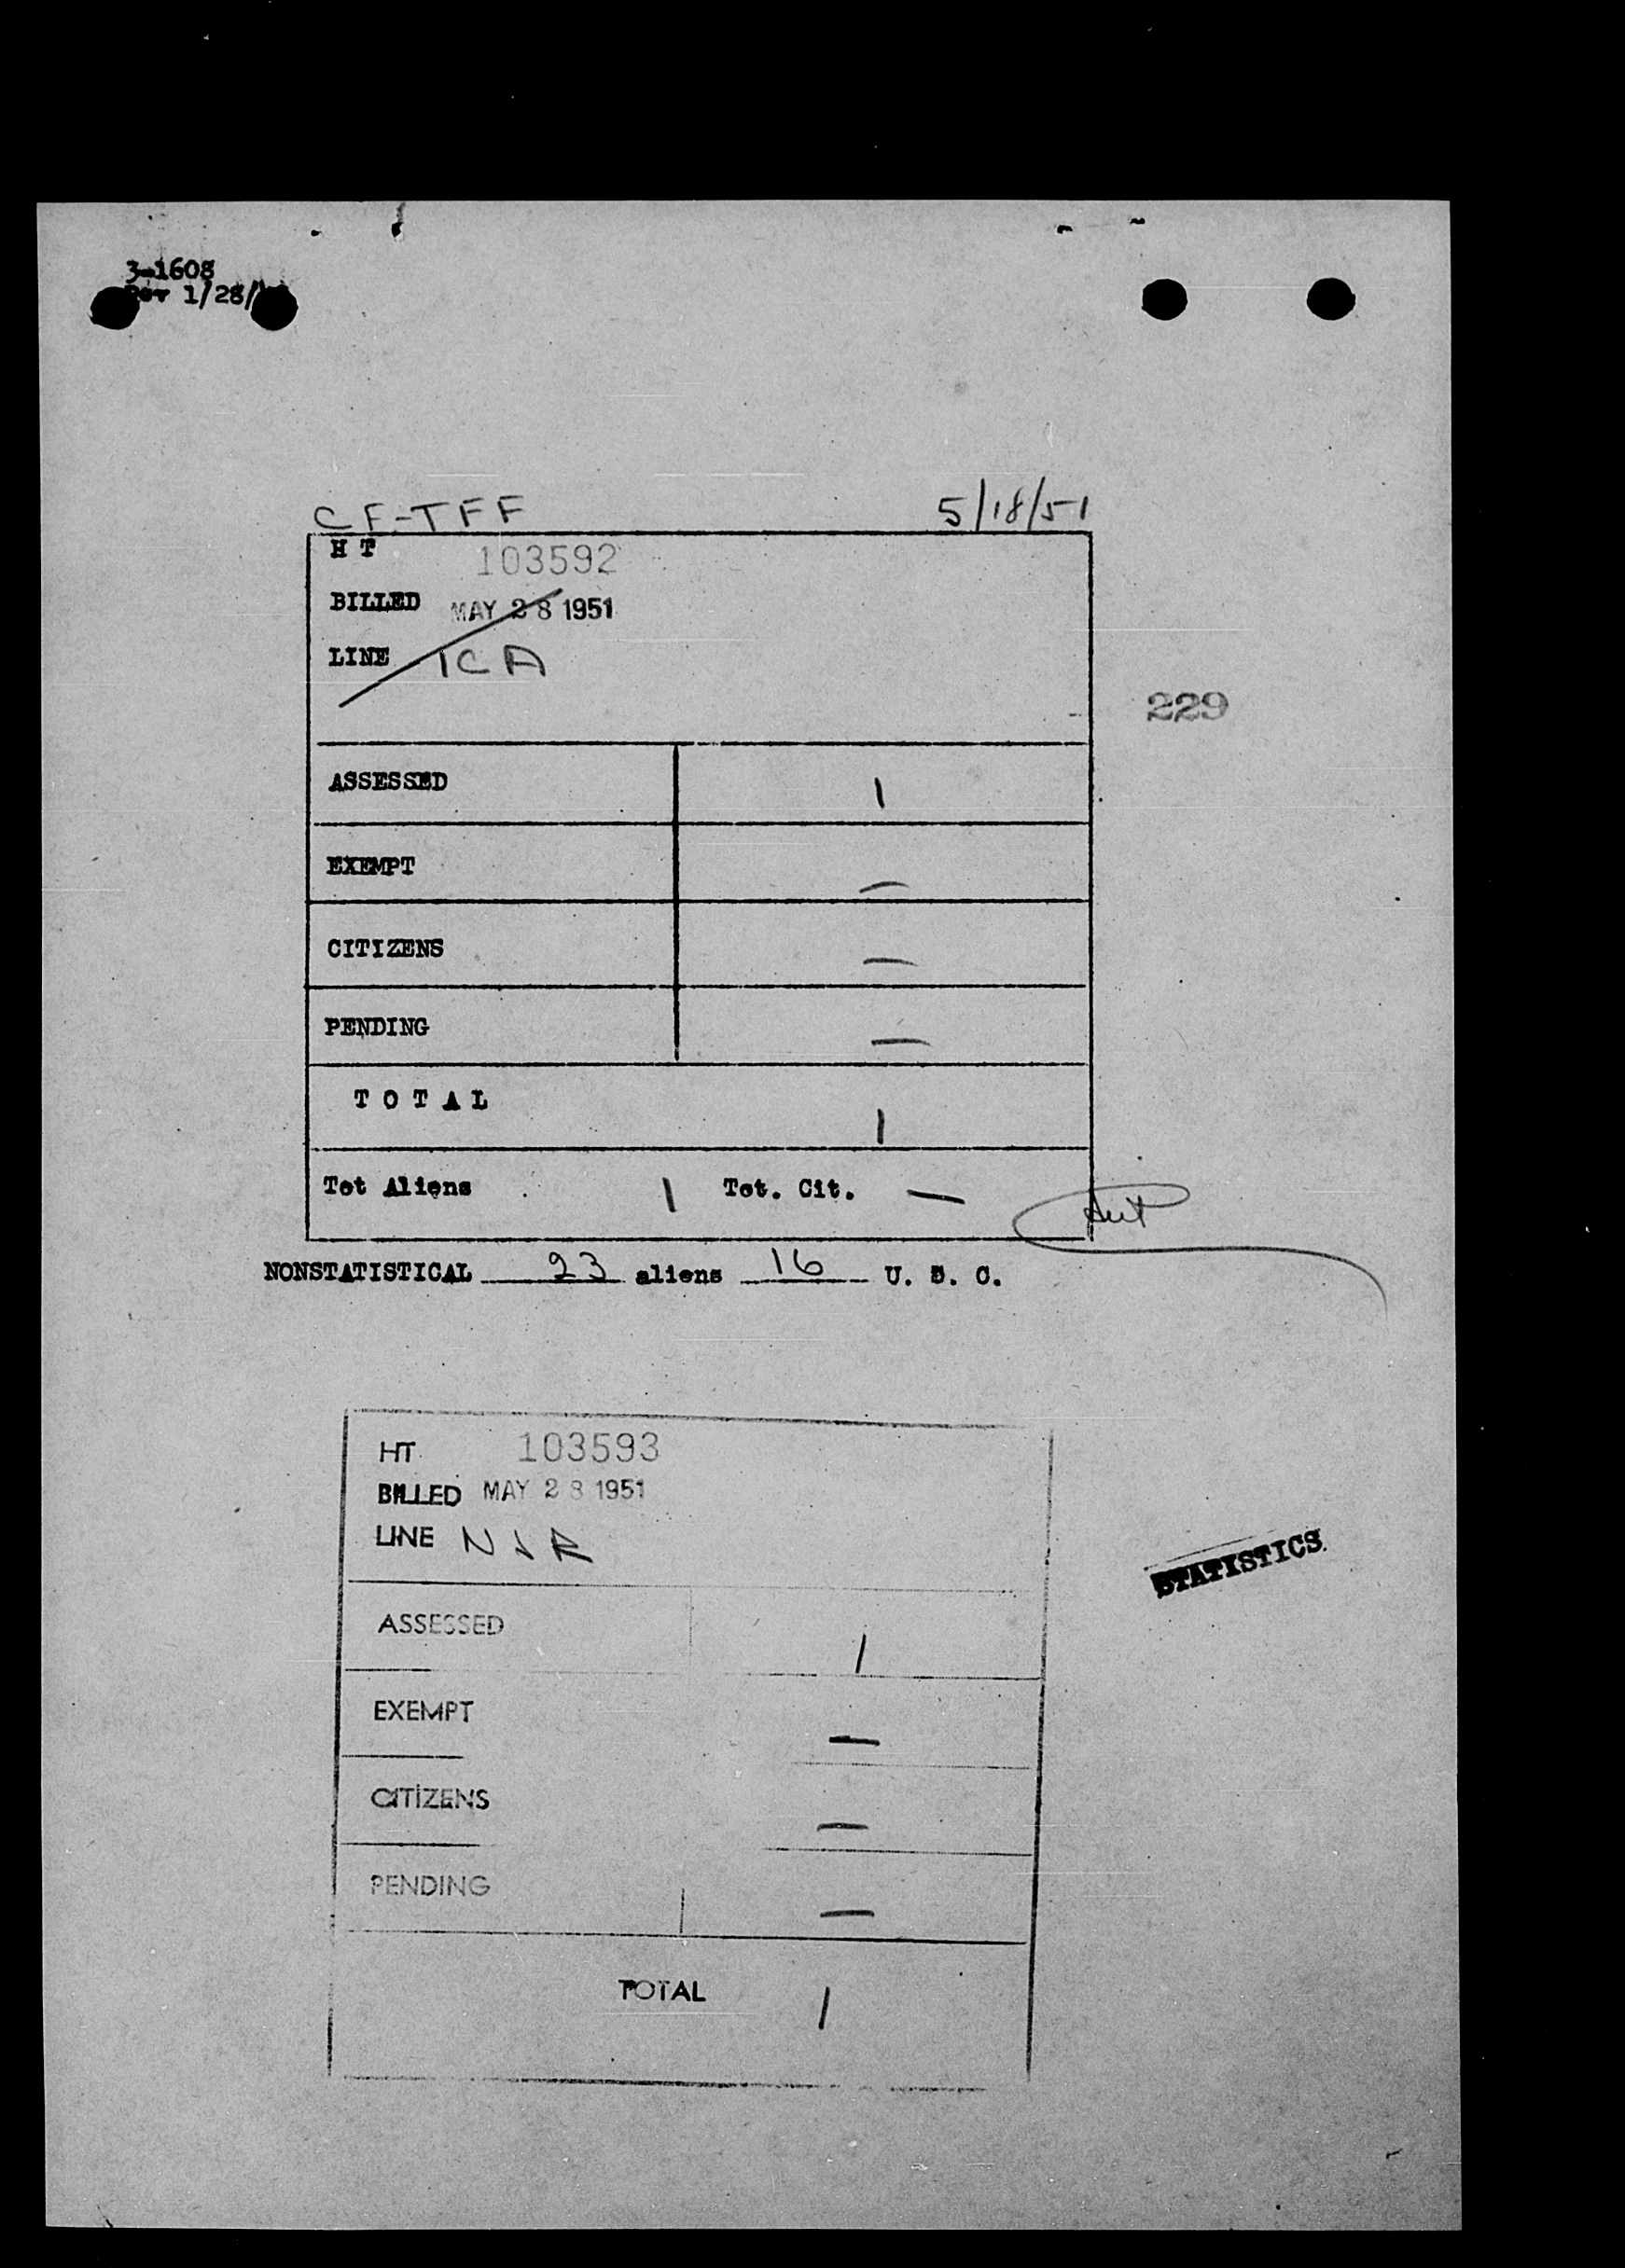 3-1608
Rev 1/28/
CF-TFF 5/18/51
H T 103592
BILLED MAY 28 1951
LINE TCA
229
ASSESSED 1
EXEMPT —
CITIZENS —
PENDING —
T O T A L 1
Tot Aliens 1 Tot. Cit. —
NONSTATISTICAL 23 aliens 16 U. S. C.
HT 103593
BILLED MAY 28 1951
LINE
STATISTICS
ASSESSED 1
EXEMPT —
CITIZENS —
PENDING —
TOTAL 1